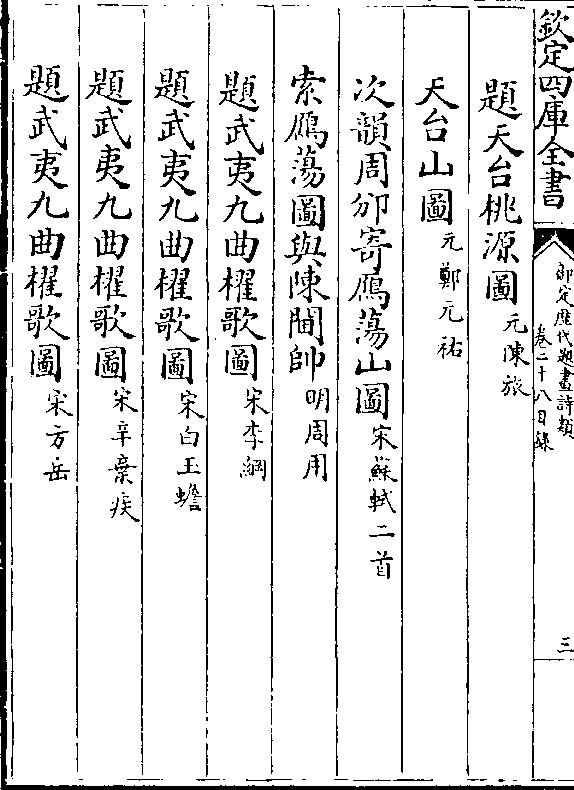 欽定四庫全書
御定歷代題畫詩類
卷二十八目錄
三
題天台桃源圖元陳旅
天台山圖元鄭元祐
次韻周邠寄鴈蕩山圖宋蘇軾二首
索鴈蕩圖與陳閫帥明周用
題武夷九曲櫂歌圖宋李綱
題武夷九曲櫂歌圖宋白玉蟾
題武夷九曲櫂歌圖宋辛棄疾
題武夷九曲櫂歌圖宋方岳